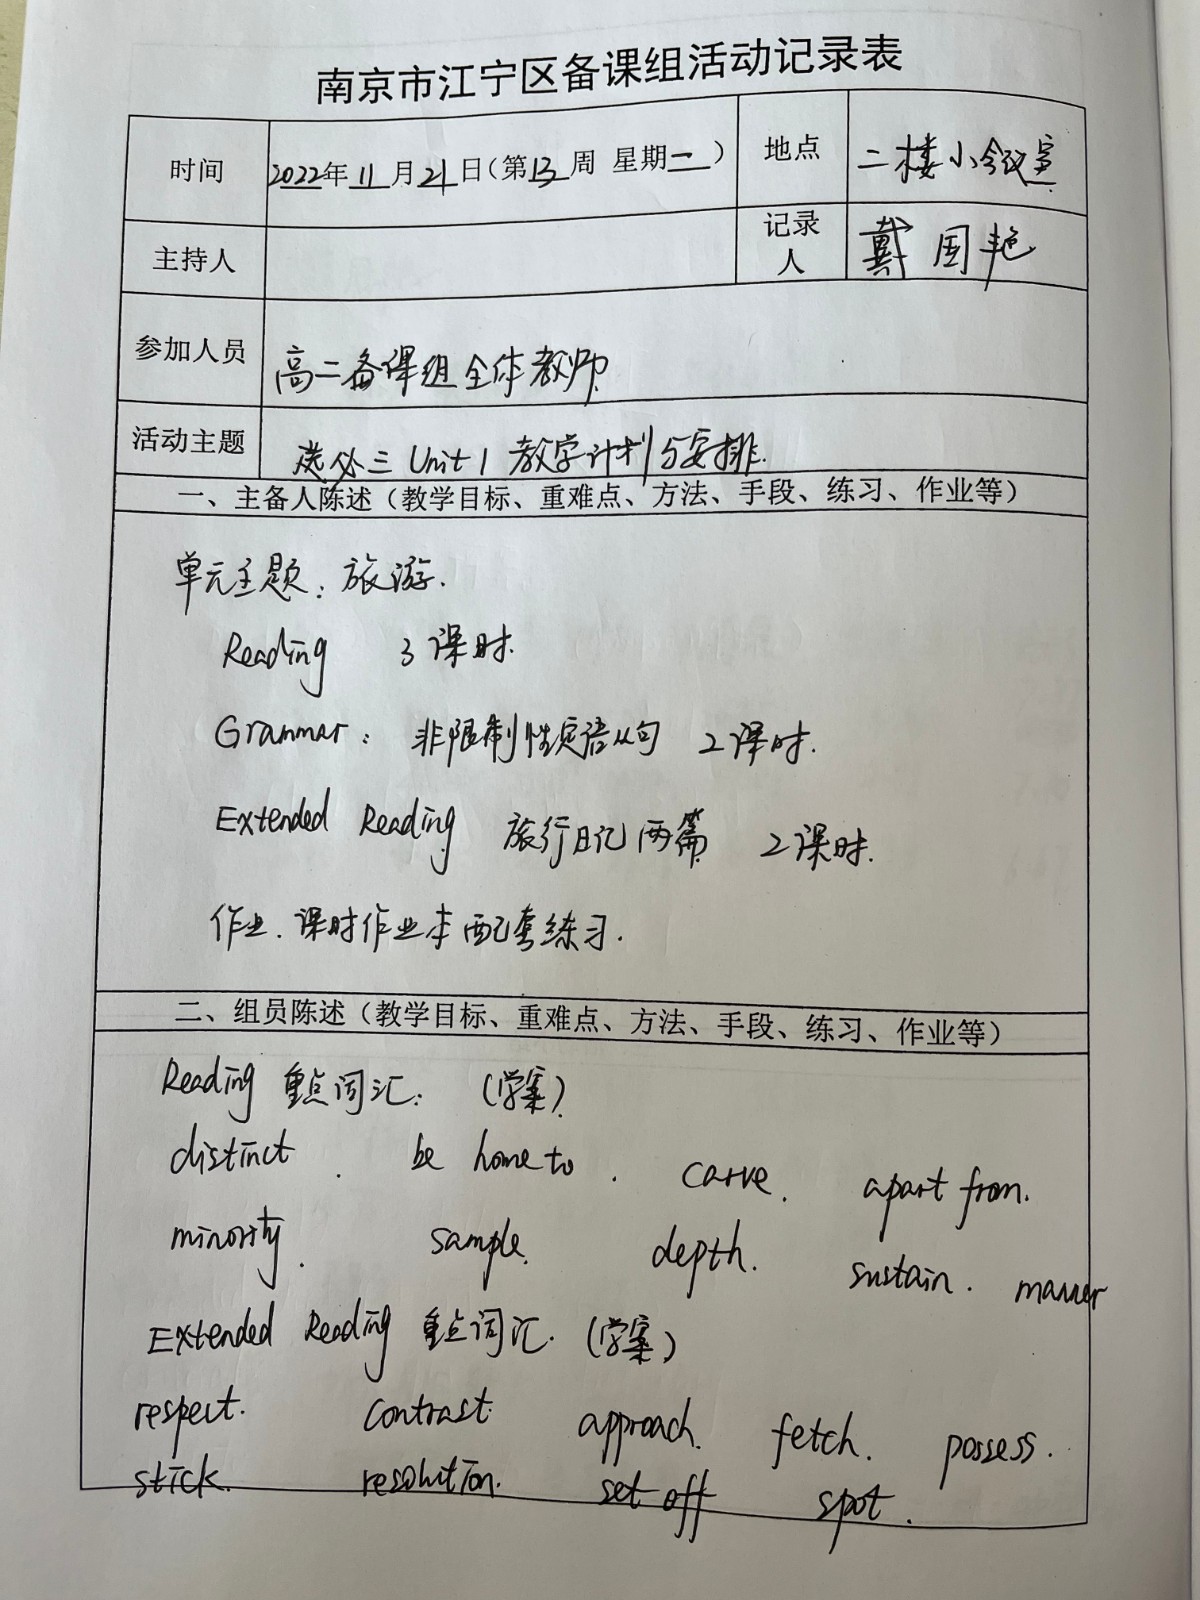 南京市江宁区备课组活动记录表
时间 2022年11月21日(第13周 星期一) 地点 二楼小会议室
主持人 记录人 戴国艳
参加人员 高二备课组全体教师
活动主题 选必三 Unit 1 教学计划与安排.
一、主备人陈述(教学目标、重难点、方法、手段、练习、作业等)
单元主题: 旅游.
Reading 3课时.
Grammar: 非限制性定语从句 2课时.
Extended Reading 旅行日记两篇 2课时.
作业. 课时作业本配套练习.
二、组员陈述(教学目标、重难点、方法、手段、练习、作业等)
Reading 重点词汇: (学案)
distinct. be home to. carve. apart from.
minority. sample. depth. sustain. manner
Extended Reading 重点词汇. (学案)
respect. contrast. approach. fetch. possess.
stick. resolution. set off spot.